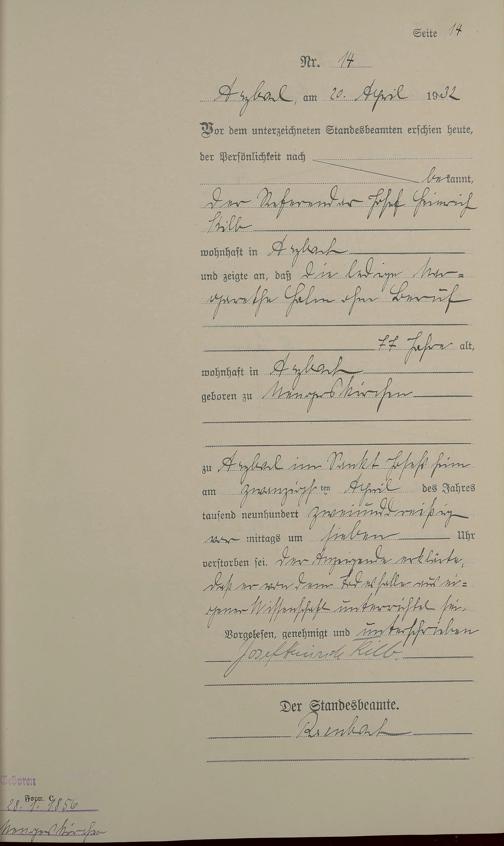 Seite 14
Nr. 14
Arzbach, am 20. April 1932
Vor dem unterzeichneten Standesbeamten erschien heute,
der Persönlichkeit nach
bekannt,
der Referendar Josef Heinrich
Kilb
wohnhaft in Arzbach
und zeigte an, daß die ledige Mar=
garethe Halm ohne Beruf
77 Jahre alt,
wohnhaft in Arzbach
geboren zu Mengerskirchen
zu Arzbach im Sankt Josefsheim
am zwanzigsten April des Jahres
tausend neunhundert zweiunddreißig
vor mittags um sieben Uhr
verstorben sei. Der Anzeigende erklärte,
daß er von dem Todesfalle aus ei=
gener Wissenschaft unterrichtet sei.
Vorgelesen, genehmigt und unterschrieben
Josef Heinrich Kilb.
Der Standesbeamte.
Geboren
Form. C.
Mengerskirchen